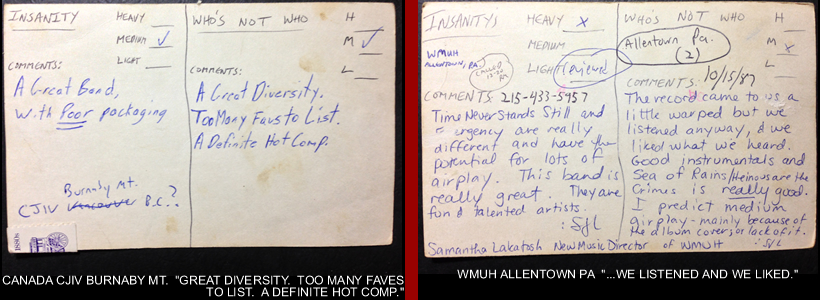 INSANITY;
HEAVY
MEDIUM ✓
LIGHT
COMMENTS:
A Great Band,
with Poor packaging
Burnaby Mt.
CJIV Vancouver B.C.?
WHO'S NOT WHO
H
M ✓
L
COMMENTS:
A Great Diversity.
Too Many Favs to List.
A Definite Hot Comp.
CANADA CJIV BURNABY MT. "GREAT DIVERSITY. TOO MANY FAVES
TO LIST. A DEFINITE HOT COMP."
INSANITY;
HEAVY X
WMUH
ALLENTOWN, PA.
MEDIUM
LIGHT
reviewed
COMMENTS: 215-433-5957
Time Never Stands Still and
urgency are really
different and have the
potential for lots of
airplay. This band is
really great. They are
fun & talented artists.
: SJL
Samantha Lakatosh New Music Director of WMUH
WHO'S NOT WHO
H
Allentown Pa.
(2)
M X
L
COMMENTS: 10/15/87
The record came to us a
little warped but we
listened anyway, & we
liked what we heard.
Good instrumentals and
Sea of Rains/Heinous are the
Crimes is really good.
I predict medium
airplay - mainly because of
the album cover, or lack of it.
: SJL
WMUH ALLENTOWN PA "...WE LISTENED AND WE LIKED."